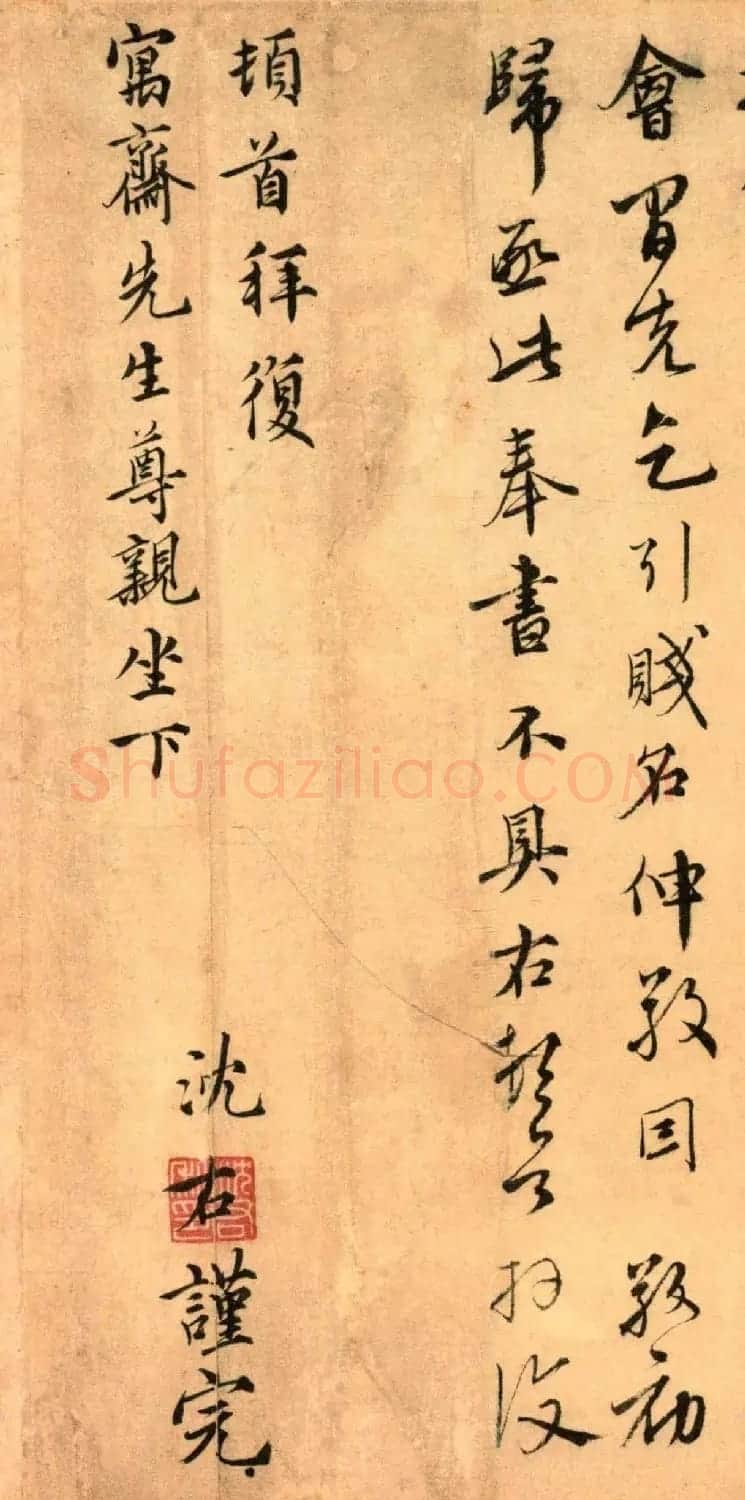 會間先乞引賤名伸敬因 敬初
歸亟此奉書不具右頓首拜復
頓首拜復
寓齋先生尊親坐下
沈右謹完
Shufaziliao.COM